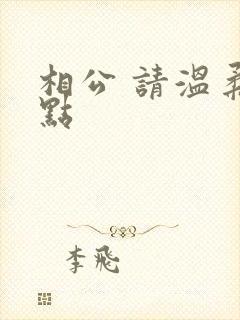 相公 請溫柔
點
李飛